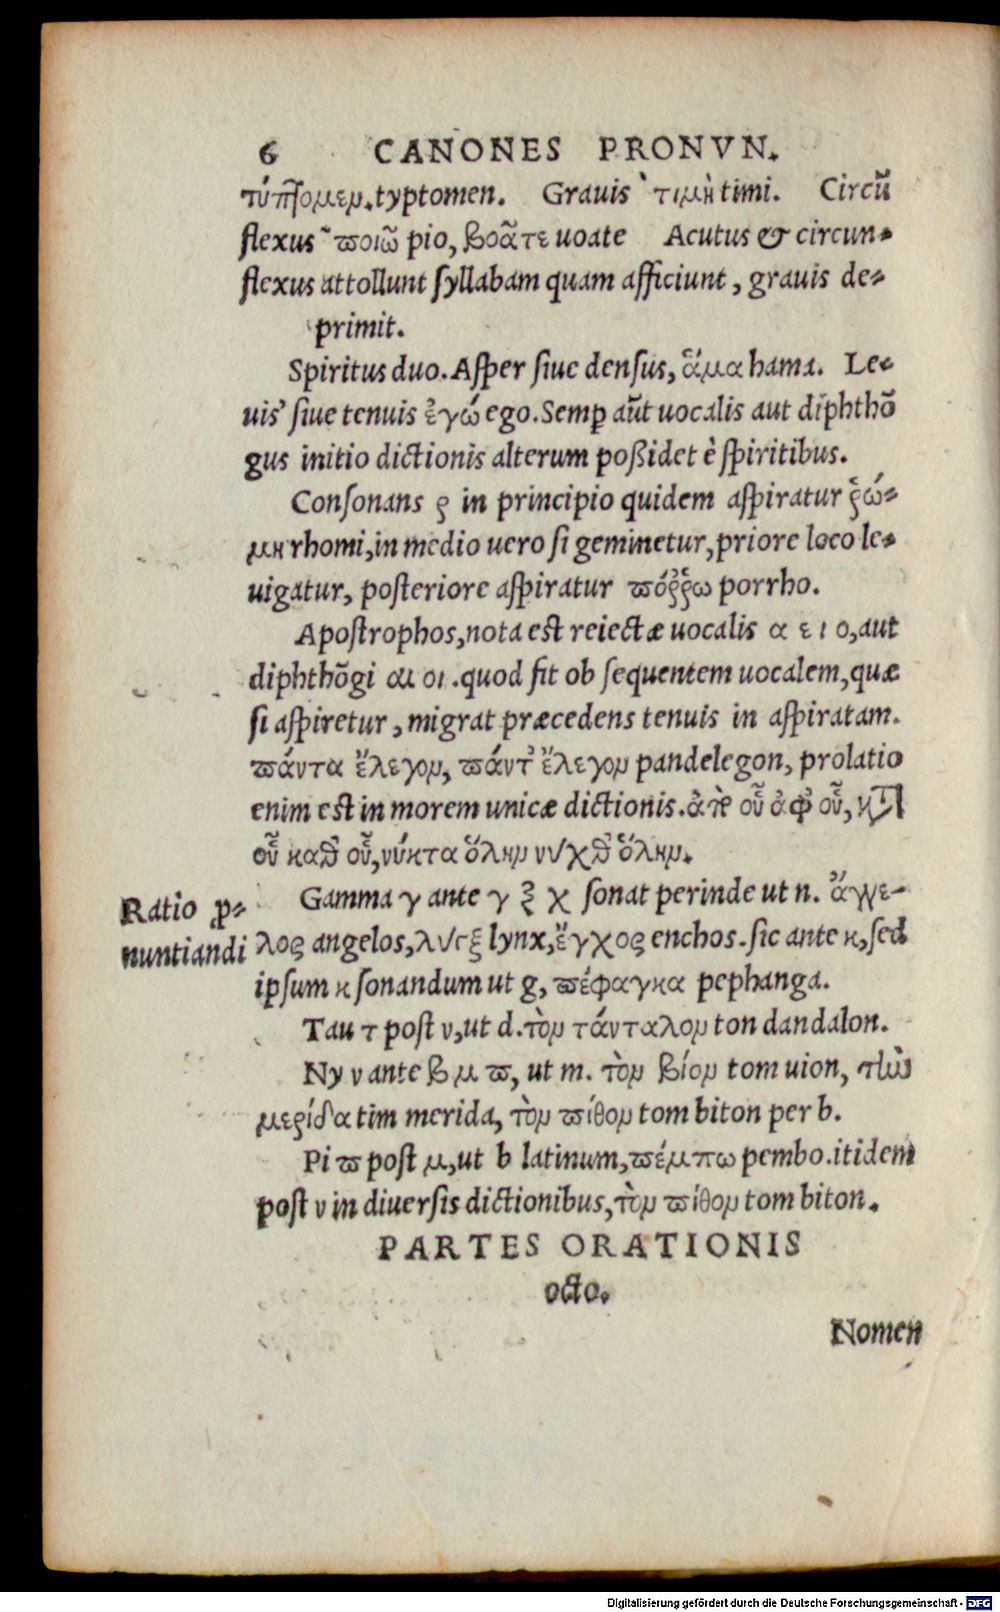 6 CANONES PRONVN.
τύπτομεν. typtomen. Grauis ` τιμὴ timi. Circũ
flexus ῀ ποιῶ pio, βοᾶτε uoate Acutus & circun-
flexus attollunt syllabam quam afficiunt, grauis de-
primit.
Spiritus duo. Asper siue densus, ἅμα hama. Le-
uis᾽ siue tenuis ἐγώ ego. Semꝑ aũt uocalis aut diphthõ
gus initio dictionis alterum poßidet è spiritibus.
Consonans ρ in principio quidem aspiratur ῥώ-
μη rhomi, in medio uero si geminetur, priore loco le-
uigatur, posteriore aspiratur πόῤῥω porrho.
Apostrophos, nota est reiectæ uocalis α ε ι ο, aut
diphthõgi αι οι. quod fit ob sequentem uocalem, quæ
si aspiretur, migrat præcedens tenuis in aspiratam.
πάντα ἔλεγον, πάντ᾽ ἔλεγον pandelegon, prolatio
enim est in morem unicæ dictionis. ἀπὸ οὗ ἀφ᾽ οὗ, κατὰ
οὗ καθ᾽ οὗ, νύκτα ὅλην νύχθ᾽ ὅλην.
Ratio ꝓ-
nuntiandi
Gamma γ ante γ ξ χ sonat perinde ut n. ἄγγε-
λος angelos, λυγξ lynx, ἔγχος enchos. sic ante κ, sed
ipsum κ sonandum ut g, πέφαγκα pephanga.
Tau τ post ν, ut d. τὸν τάνταλον ton dandalon.
Ny ν ante β μ π, ut m. τὸν βίον tom uion, τὴν
μερίδα tim merida, τὸν πίθον tom biton per b.
Pi π post μ, ut b latinum, πέμπω pembo. itidem
post ν in diuersis dictionibus, τὸν πίθον tom biton.
PARTES ORATIONIS
octo.
Nomen
Digitalisierung gefördert durch die Deutsche Forschungsgemeinschaft - DFG